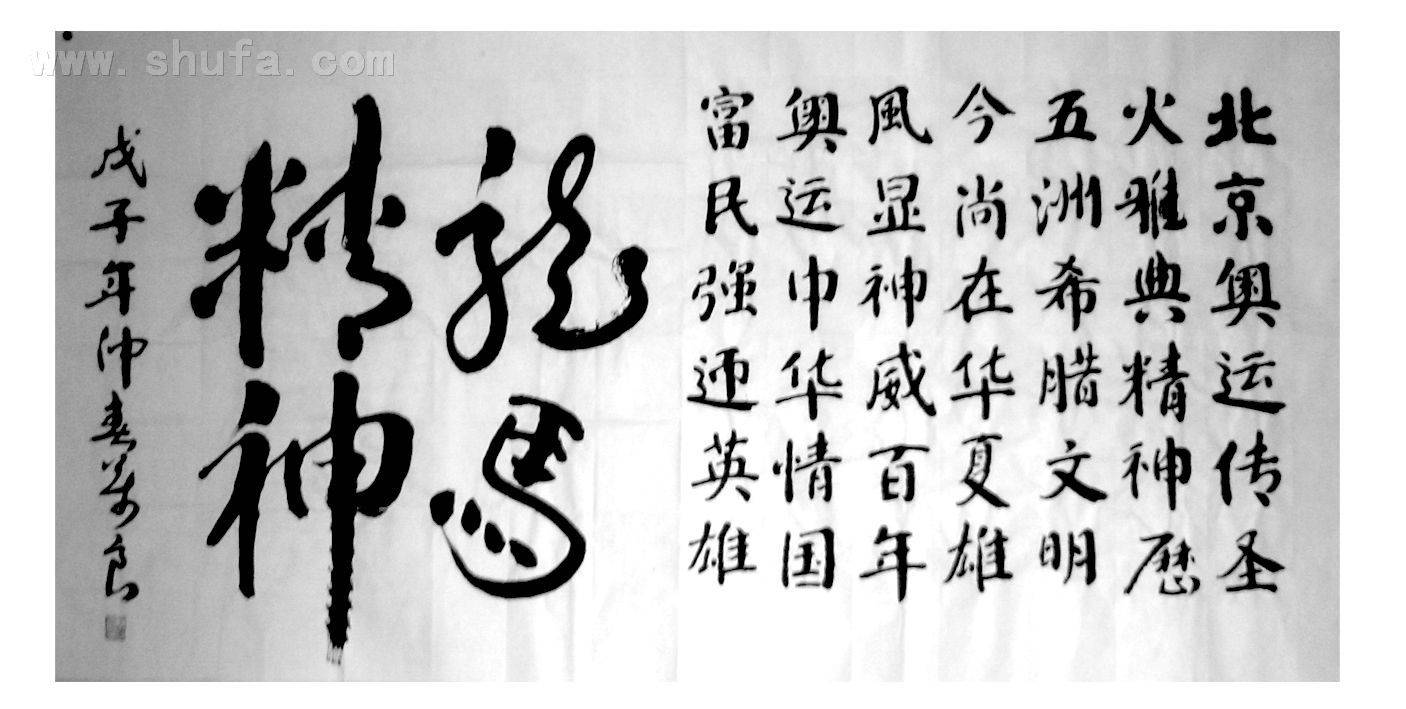 北京奥运传圣
火雅典精神歷
五洲希腊文明
今尚在华夏雄
風显神威百年
奥运中华情国
富民强迎英雄
龍馬
精神
戊子年仲春萬良
www.shufa.com